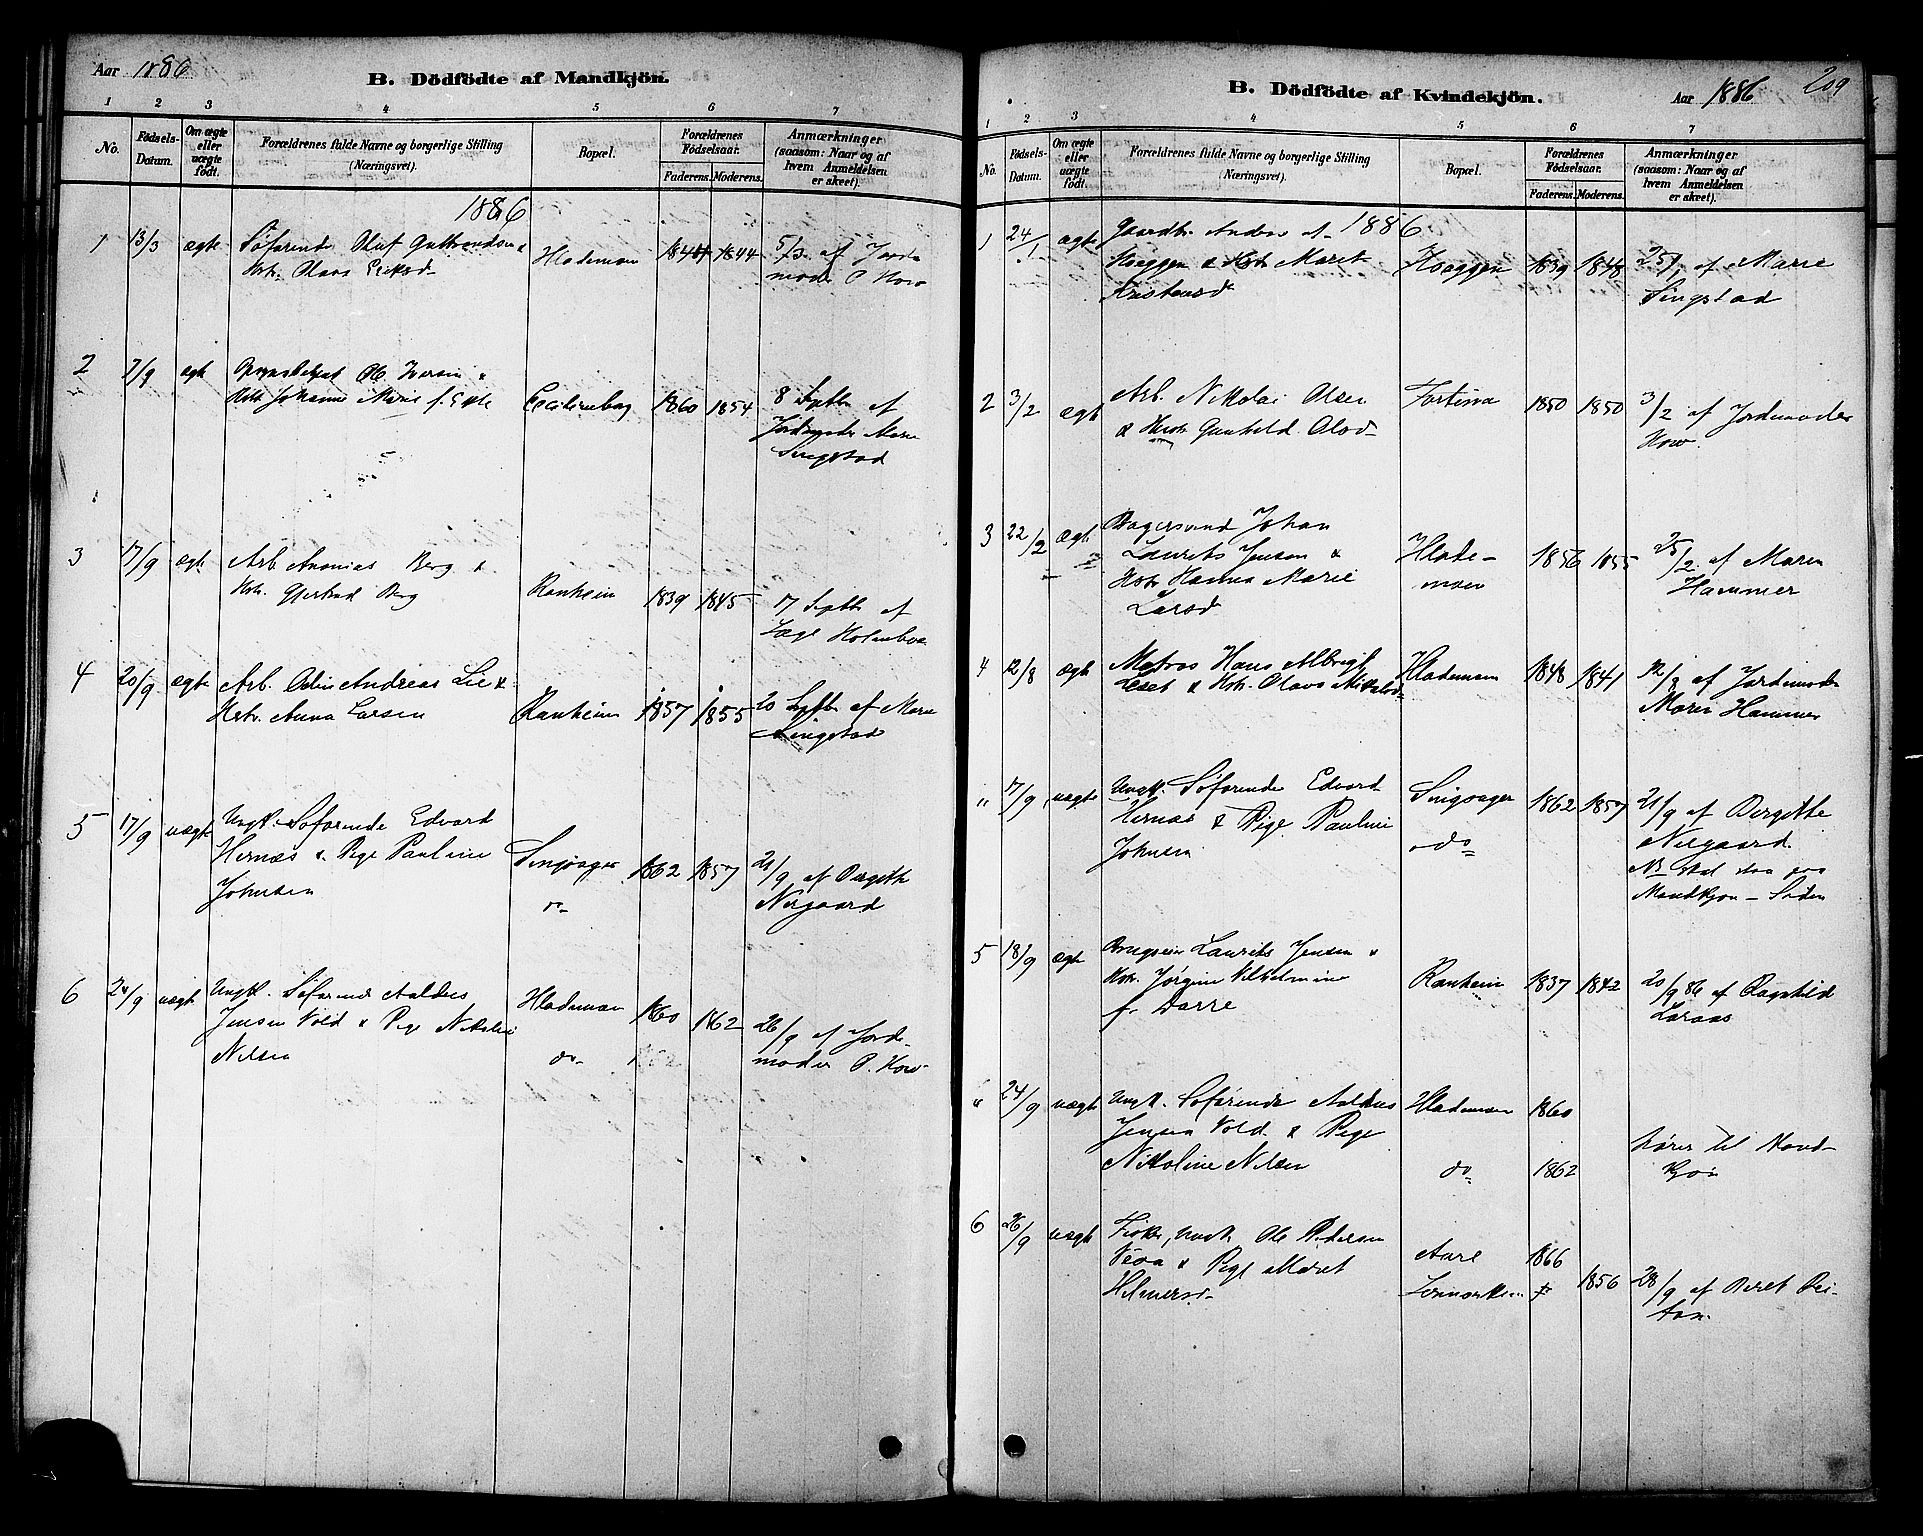 Aar 1886
B. Dödfödte af Mandkjön.
1 2 3 4 5 6 7
No.
Födsels-
Datum.
Om ægte
eller
uægte
födt.
Forældrenes fulde Navne og borgerlige Stilling
(Næringsvei).
Bopæl.
Forældrenes
Födselsaar.
Faderens. Moderens.
Anmærkninger
(saasom: Naar og af
hvem Anmeldelsen
er skeet).
1886
1 13/3 ægte Söfarende Oluf &
Hstr. Olava Eriksd.
Hlademoen 1844 1844
5/3 af Jorde
moder P. How
2 7/9 ægt Ole Iversen &
Hstr Johanna Marie f.
Cecilienborg 1860 1854
8 Septbr af
Jordmoder Marie
Singstad
3 17/9 ægte Arb. Ananias Berg &
Hstr. Gjertrud Berg
Ranheim 1839 1845
17 Septbr af
Læge Holmboe
4 20/9 ægte Arb. Odin Andreas Lie &
Hstr. Anna Larsen
Ranheim 1857 1855
20 Septbr af Marie
Singstad
5 17/9 uægte Ungk. Söfarende Edvard
Hernæs & Pige Pauline
Johnsen
Singsager
do
1862 1857
21/9 af Bergitte
Nergaard
6 24/9 uægte Ungk. Söfarende Aaldus
Jensen Vold & Pige Nikoline
Nilsen
Hlademoen
do
1860 1862
26/9 af Jorde-
moder P. How
B. Dödfödte af Kvindekjön.
Aar 1886
209
1 2 3 4 5 6 7
No.
Födsels-
Datum.
Om ægte
eller
uægte
födt.
Forældrenes fulde Navne og borgerlige Stilling
(Næringsvei).
Bopæl.
Forældrenes
Födselsaar.
Faderens. Moderens.
Anmærkninger
(saasom: Naar og af
hvem Anmeldelsen
er skeet).
1886
1 24/1 ægte Gaardbr. Anders
& Hstr Maret
Kristensd
1839 1848
25/1 af Marie
Singstad
2 3/2 ægte Arb. Nikolai Olsen
& Hstr Gunhild Olsd
Fortuna 1850 1850
3/2 af Jordmoder
How
3 22/2 ægte Bagersvend Johan
Laurits Jensen &
Hstr Hanna Marie
Larsd
Hlade-
moen
1856 1855
25/2 af Maren
Hammer
4 12/8 ægte Matros Hans Albrigt
& Hstr. Olava
Hlademoen 1848 1841
12/8 af Jordemoder
Maren Hammer
" 17/9 uægte Ungk. Söfarende Edvard
Hernæs & Pige Pauline
Johnsen
Singsager
do
1862 1857
21/9 af Bergitte
Nergaard.
NB skal staa paa
Mandkjön - Siden
5 18/9 ægte Laurits Jensen &
Hstr. Jørgine Vilhelmine
f. Darre
Ranheim 1837 1842
20/9 86 af Ragnhild
Laraas
" 24/9 uægte Ungk. Söfarende Aaldus
Jensen Vold & Pige
Nikoline Nilsen
Hlademoen
do
1860
1862
hører til Mand-
kjön
6 26/9 uægte Fisker, Ole Pedersen
& Pige Maret
Helmersd.
Aure
1866
1856
28/9 af Beret